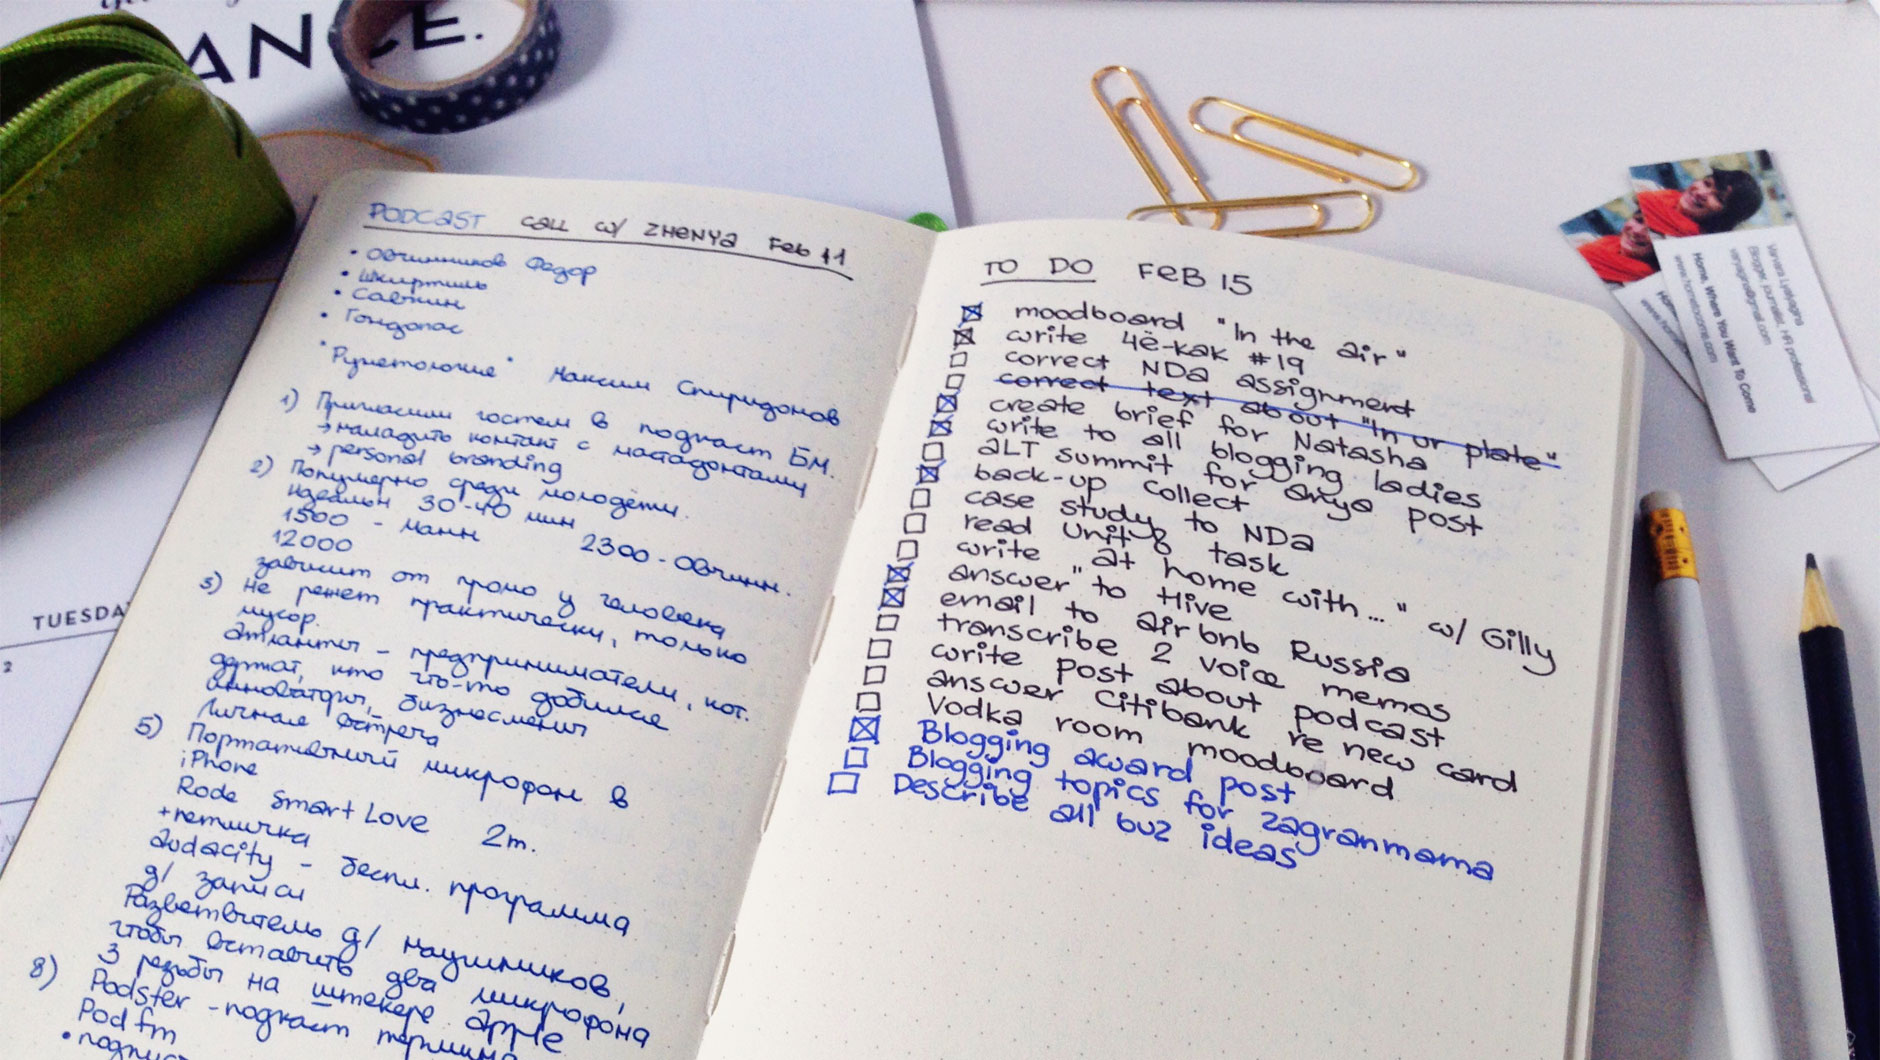 ANCE.
TUESDA
2
PODCAST CALL W/ ZHENYA Feb 11
• Овчинников Федор
• Шкирпиль
• Савкин
• Гондопас
"Рунетология" Максим Спиридонов
1) Пригласили гостем в подкаст БМ.
→ наладить контакт с мастадонтами
→ personal branding
2) Популярно среди молодёжи.
идеальн 30-40 мин
1500 - манн 2300 - Овчинн.
12000
зависит от промо у человека
3) Не режет практически, только
мусор.
Атланты - предприниматели, кот.
держат, кто что-то добился
инноваторы, бизнесмены
Личная встреча
5) Портативный микрофон в
iPhone
Rode Smart Love 2m.
+петличка
audacity - беспл. программа
д/ записи
Разветвитель д/ наушников,
чтобы вставить два микрофона
3 резьбы на штекере apple
8) Podster - подкаст терминал
Pod fm
TO DO FEB 15
moodboard "In the air"
write чё-как #19
correct NDa assignment
correct text about "In ur plate"
create brief for Natasha
write to all blogging ladies
aLT summit for anya post
back-up collect
case study to NDa
read Unit 8 task
write "at home with..." w/ Gilly
answer to Hive
email to airbnb Russia
transcribe 2 voice memos
write post about podcast
answer Citibank re new card
Vodka room moodboard
Blogging award post
Blogging topics for zagranmama
Describe all buz ideas
Varvara Lyalyagina
Blogger, journalist, HR professional
varyagina@gmail.com
Home, Where You Want To Come
www.homestocome.com